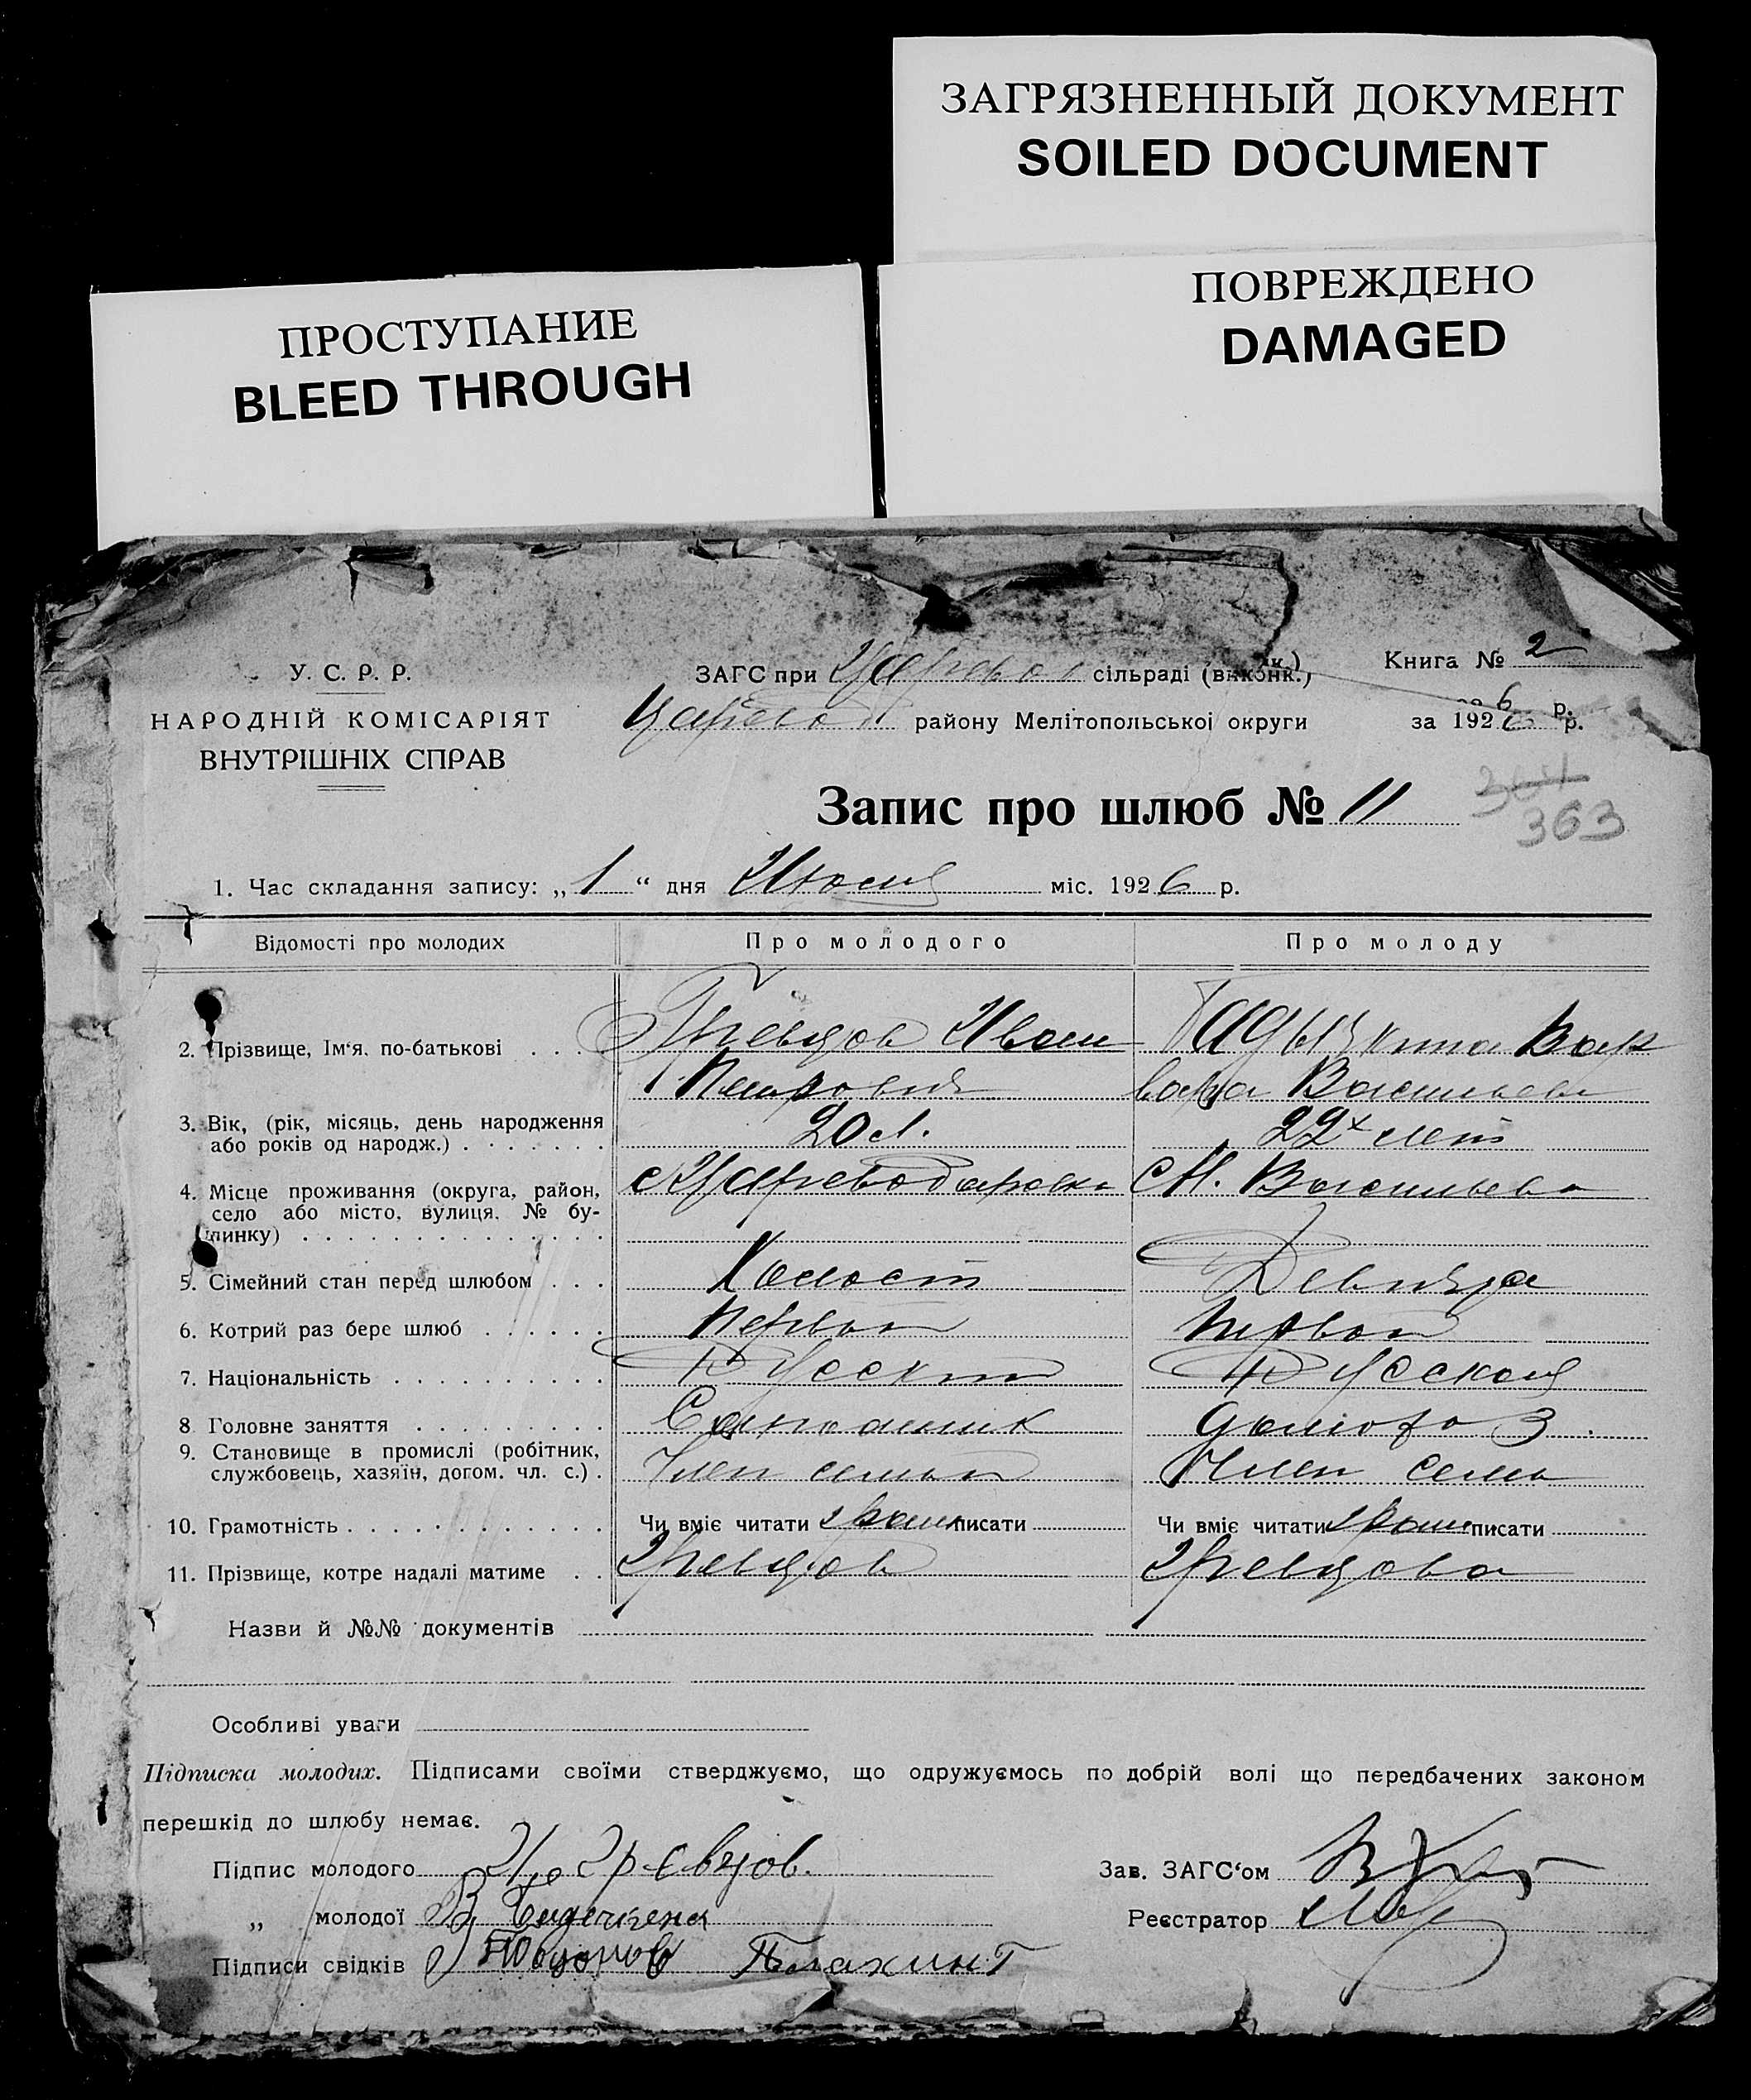 ЗАГРЯЗНЕННЫЙ ДОКУМЕНТ
SOILED DOCUMENT
ПОВРЕЖДЕНО
DAMAGED
ПРОСТУПАНИЕ
BLEED THROUGH
У. С. Р. Р.
НАРОДНІЙ КОМІСАРІЯТ
ВНУТРІШНІХ СПРАВ
ЗАГС при сільраді (виконк.)
району Мелітопольської округи
Книга № 2
за 1926 р.
Запис про шлюб № 11
364
363
1. Час складання запису: „1“ дня міс. 1926 р.
Відомості про молодих Про молодого Про молоду
2. Прізвище, Ім‘я, по-батькові . . . Гревцов Иван Вар
Петрович вара Васильевн
3. Вік, (рік, місяць, день народження
або років од народж.) . . . . . . . 20 л. 22х лет
4. Місце проживання (округа, район, с Цареводаровка с М. Васильевка
село або місто, вулиця, № бу-
динку) . . . . . . . . . . . . . .
5. Сімейний стан перед шлюбом . . . Холост Девица
6. Котрий раз бере шлюб . . . . . . Первый Первый
7. Національність . . . . . . . . . . Русский Русская
8 Головне заняття . . . . . . . . .
9. Становище в промислі (робітник,
службовець, хазяїн, догом. чл. с.) . Член семьи Член семьи
10. Грамотність . . . . . . . . . . . . Чи вміє читати писати Чи вміє читати писати
11. Прізвище, котре надалі матиме . . Гревцов Гревцова
Назви й №№ документів
Особливі уваги
Підписка молодих. Підписами своїми стверджуємо, що одружуємось по добрій волі що передбачених законом
перешкід до шлюбу немає.
Підпис молодого И. Гревцов. Зав. ЗАГС‘ом
„ молодої В Реєстратор
Підписи свідків